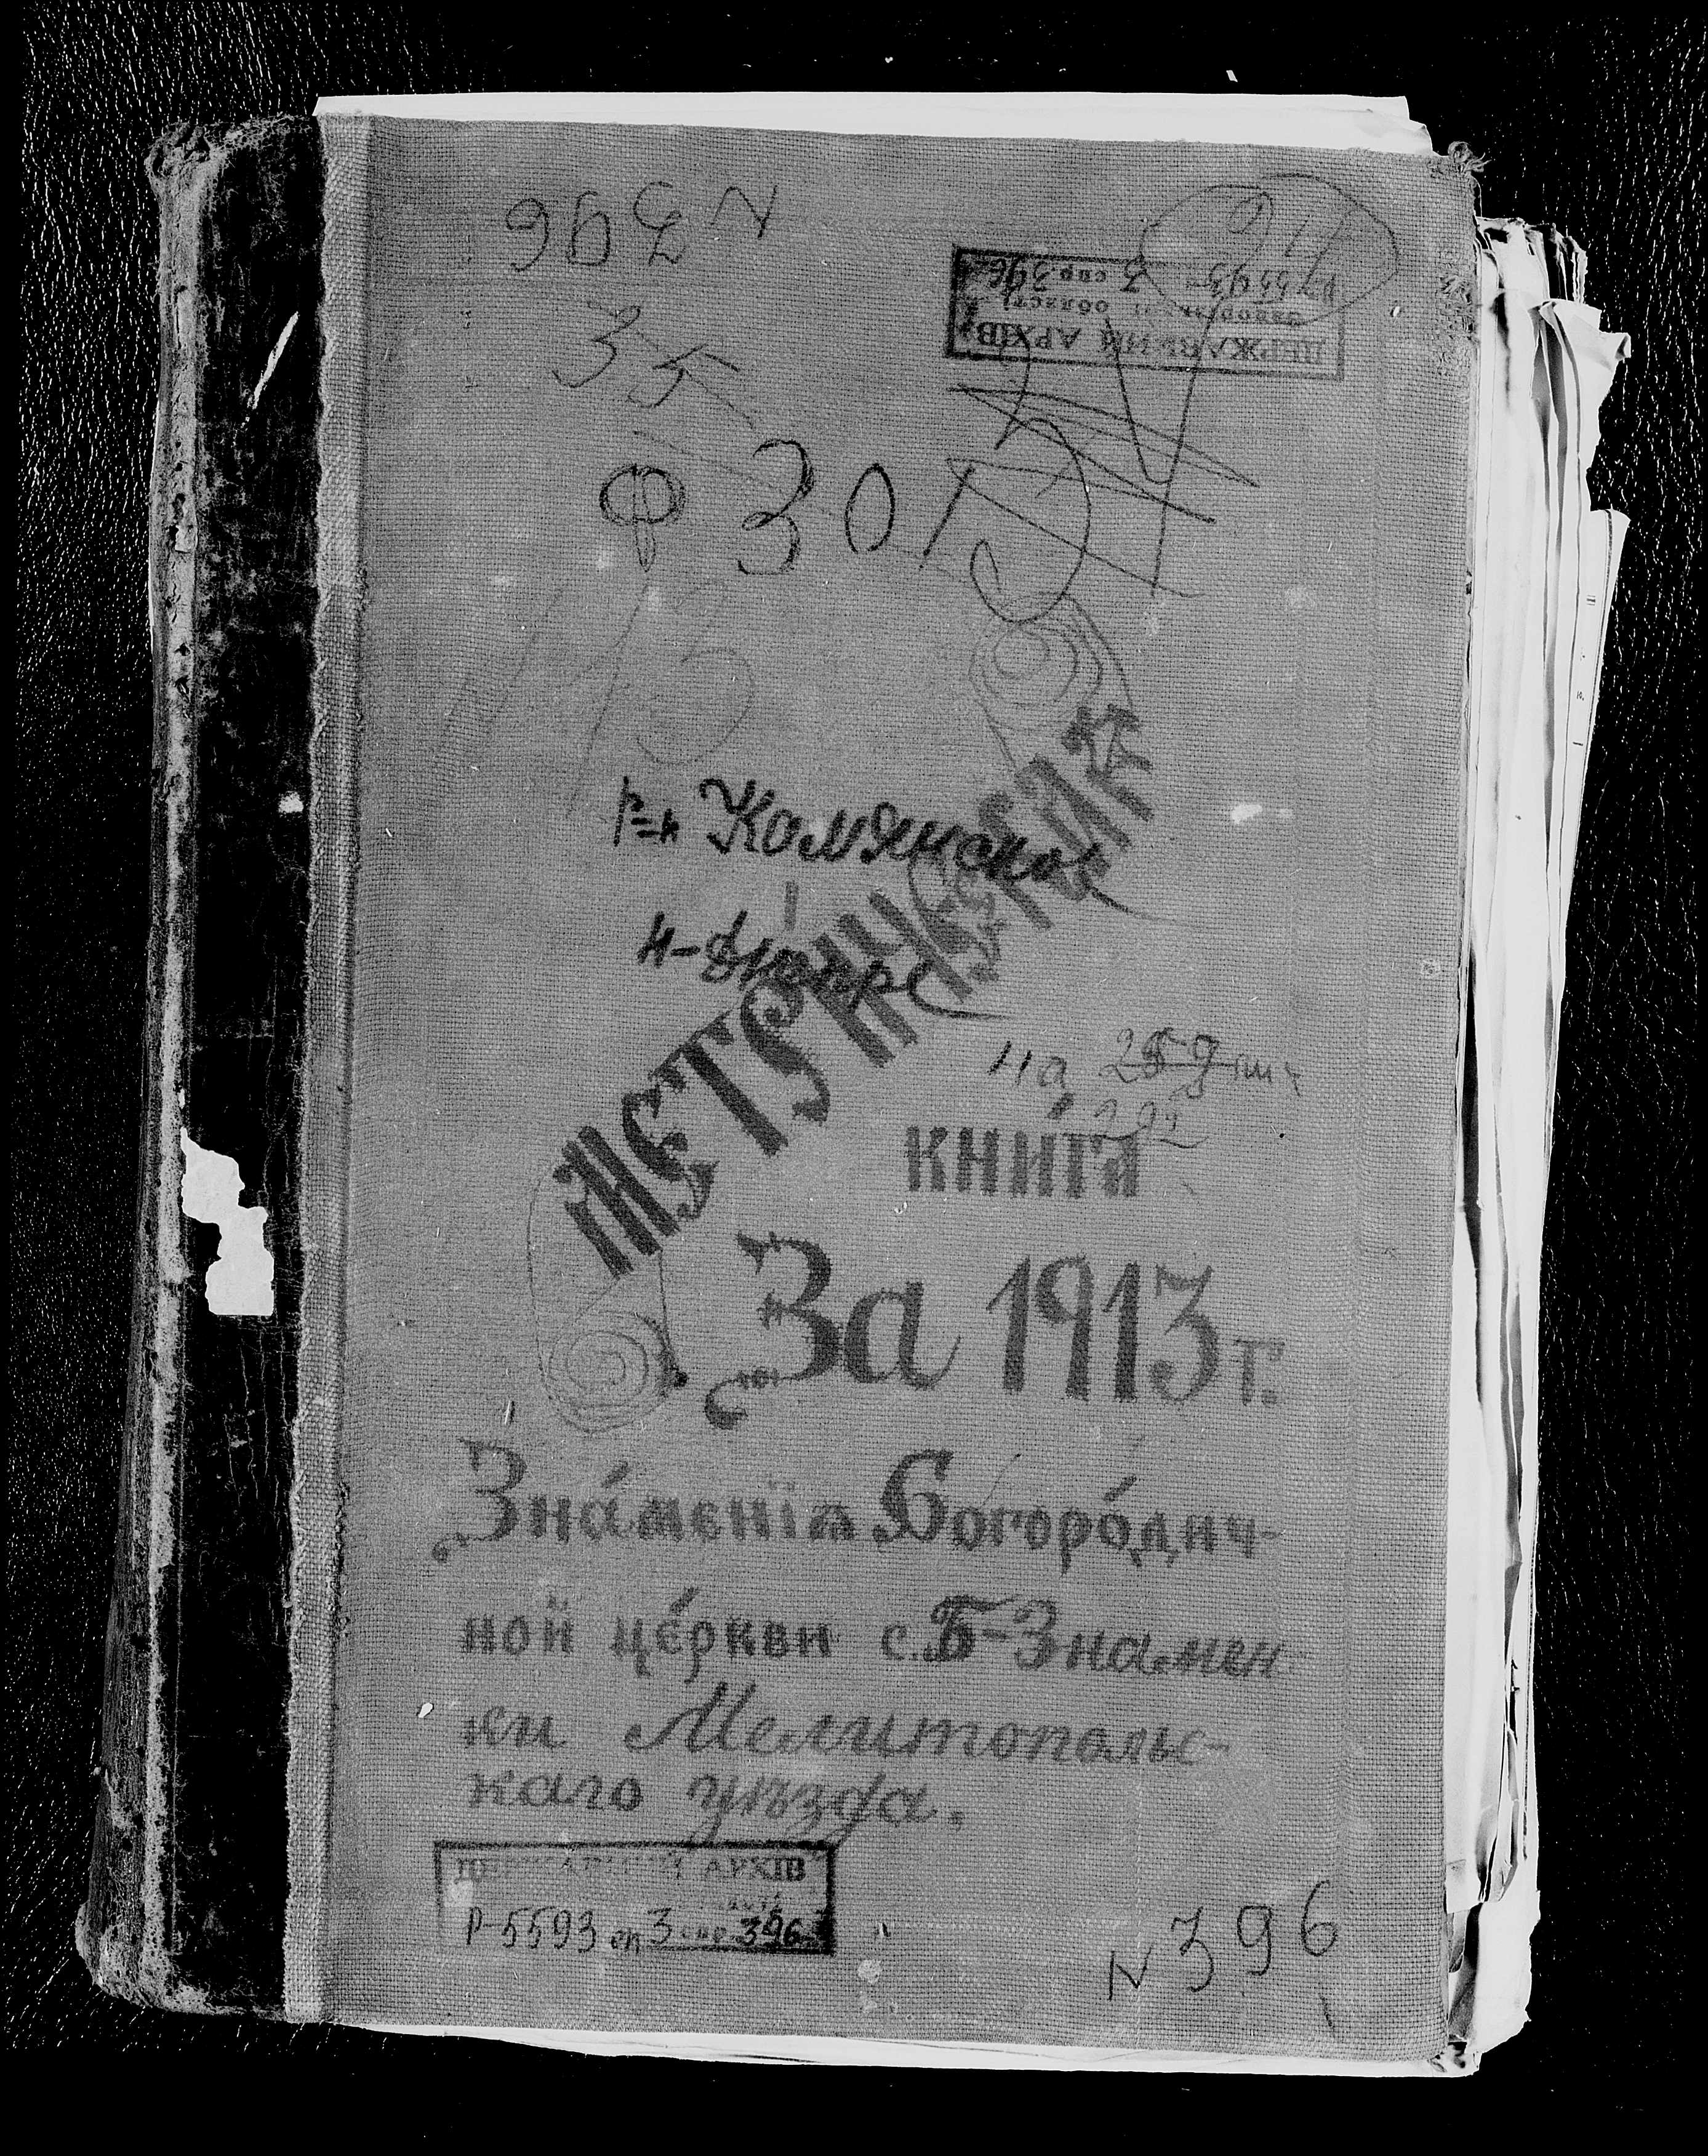 N 396
35
ДЕРЖАВНИЙ АРХІВ
Запорізької області
Р-5593 3 спр. 396
Ф 301
р-н Кам'янськ
МЕТРИЧЕСКАЯ
на
КНИ́ГА
За 1913 г.
Зна́менія Богоро́дич-
ной це́ркви с. Б-Знамен
ки Мелитопольс-
каго уѣзда.
ДЕРЖАВНИЙ АРХІВ
Р-5593 оп 3 спр 396
N 396